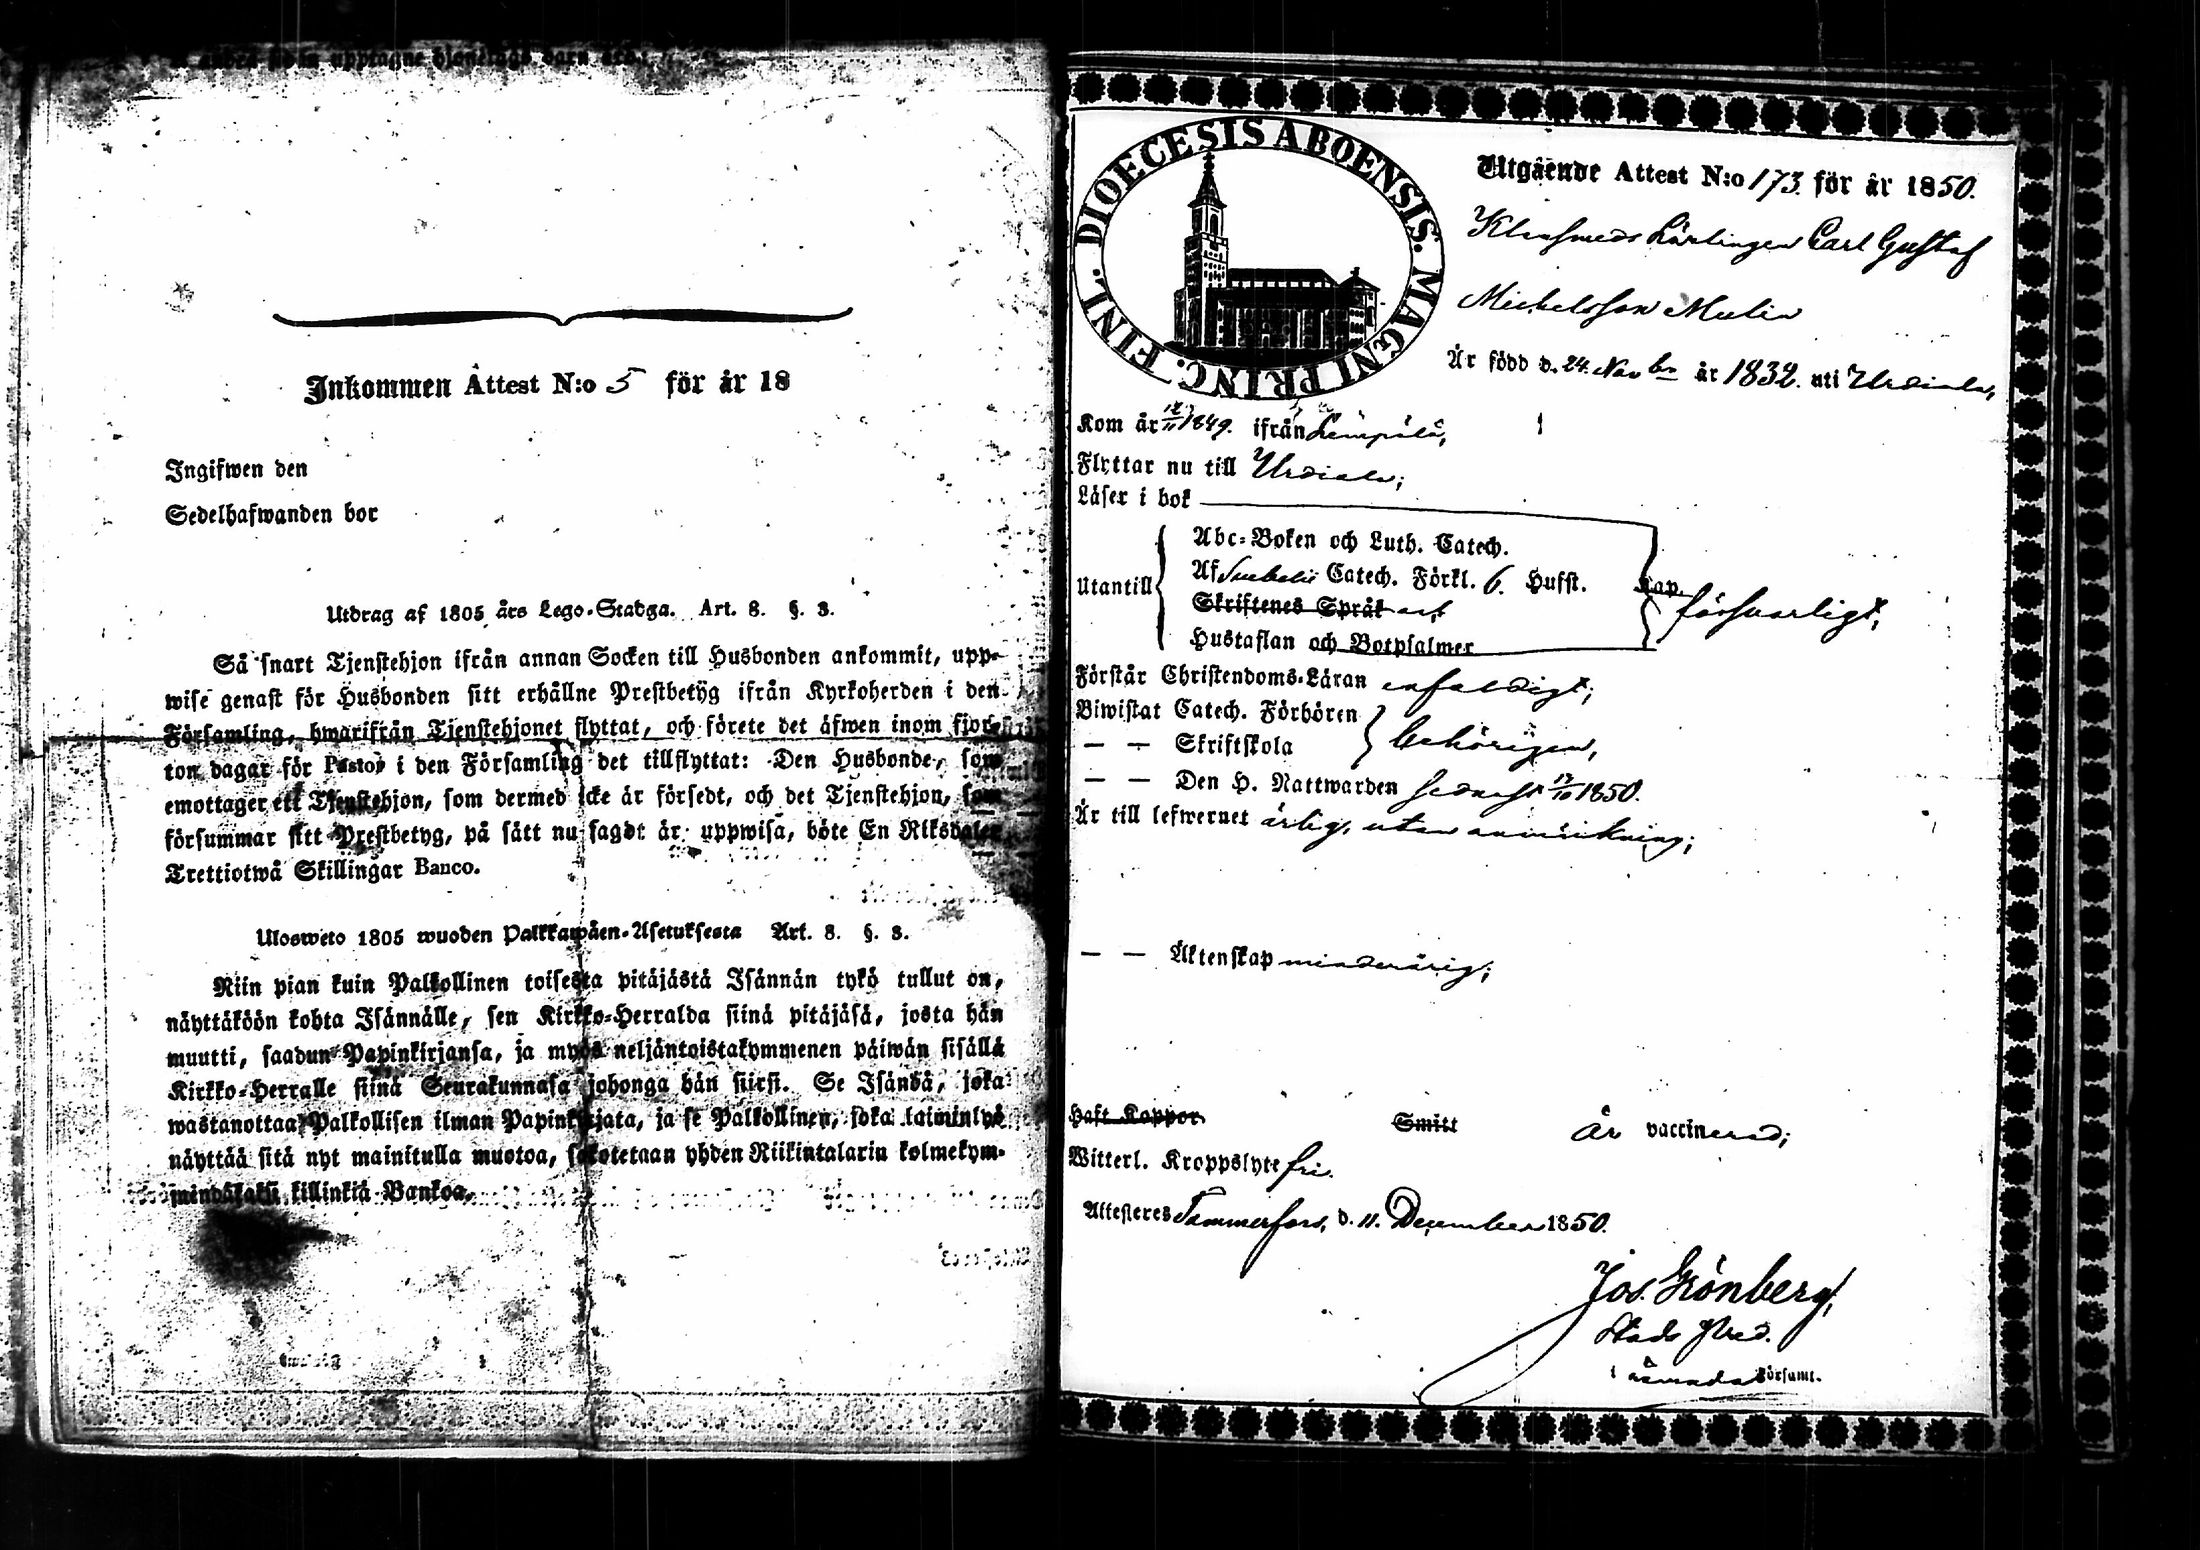 Inkommen Attest N:o 5 för år 18
Ingifwen den
Sedelhafwanden bor
Utdrag af 1805 års Lego-Stadga. Art. 8. §. 3.
Så snart Tjenstehjon ifrån annan Socken till Husbonden ankommit, upp-
wise genast för Husbonden sitt erhållne Prestbetyg ifrån Kyrkoherden i den
Församling, hwarifrån Tjenstehjonet flyttat, och förete det äfwen inom fjor-
ton dagar för Pastor i den Församling det tillflyttat: Den Husbonde, som
emottager ett Tjenstehjon, som dermed icke är försedt, och det Tjenstehjon, som
försummar sitt Prestbetyg, på sätt nu sagdt är, uppwisa, böte En Riksdaler
Trettiotwå Skillingar Banco.
Ulosweto 1805 wuoden Palkkawäen-Asetuksesta Art. 8. §. 3.
Niin pian kuin Palkollinen toisesta pitäjästä Isännän tykö tullut on,
näyttäköön kohta Isännälle, sen Kirkko-Herralda siinä pitäjäsä, josta hän
muutti, saadun Papinkirjansa, ja myös neljäntoistakymmenen päiwän sisällä
Kirkko-Herralle siinä Seurakunnasa johonga hän siirsi. Se Isändä, joka
wastanottaa Palkollisen ilman Papinkirjata, ja se Palkollinen, joka laiminlyö
näyttää sitä nyt mainitulla muotoa, sakotetaan yhden Riikintalarin kolmekym-
mendäkaksi killinkiä Bankoa.
DIOECESIS ABOENSIS. MAGNI PRINC. FINL.
Utgående Attest N:o 173. för år 1850.
Klensmeds Lärlingen Carl Gustaf
Michelsson Melin
Är född d. 24. Novbr år 1832. uti Urdiala,
Kom år 1849. ifrån Lempälä,
Flyttar nu till Urdiala;
Läser i bok
Utantill
Abc-Boken och Luth. Catech.
Af Svebelii Catech. Förkl. 6. Hufst. Kap.
Skriftenes Språk
Hustaflan och Botpsalmer
försvarligt;
Förstår Christendoms-Läran enfaldigt;
Biwistat Catech. Förhören
— — Skriftskola
behörigen,
— — Den H. Nattwarden sednast 1850.
Är till lefwernet ärlig, utan anmärkning;
— — Äktenskap minderårig;
Haft Koppor Smitt är vaccinerad;
Witterl. Kroppslyte fri.
Attesteres Tammerfors, d. 11. December 1850.
Jos. Grönberg,
Stads Pred.
i församl.